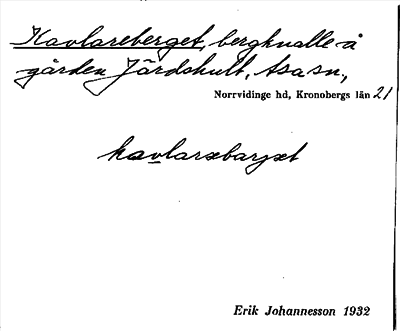 Kavlareberget, bergknalle å
gården Järdshult, Asa sn,
Norrvidinge hd, Kronobergs län 21
kavlarəbarjət
Erik Johannesson 1932